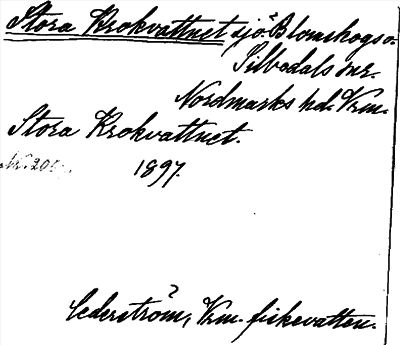 Stora Krokvattnet sjö i Blomskogs o.
Silbodals snr.
Nordmarks hd. Vrm.
Stora Krokvattnet.
1897.
Cederström, Vrm. fiskevatten.